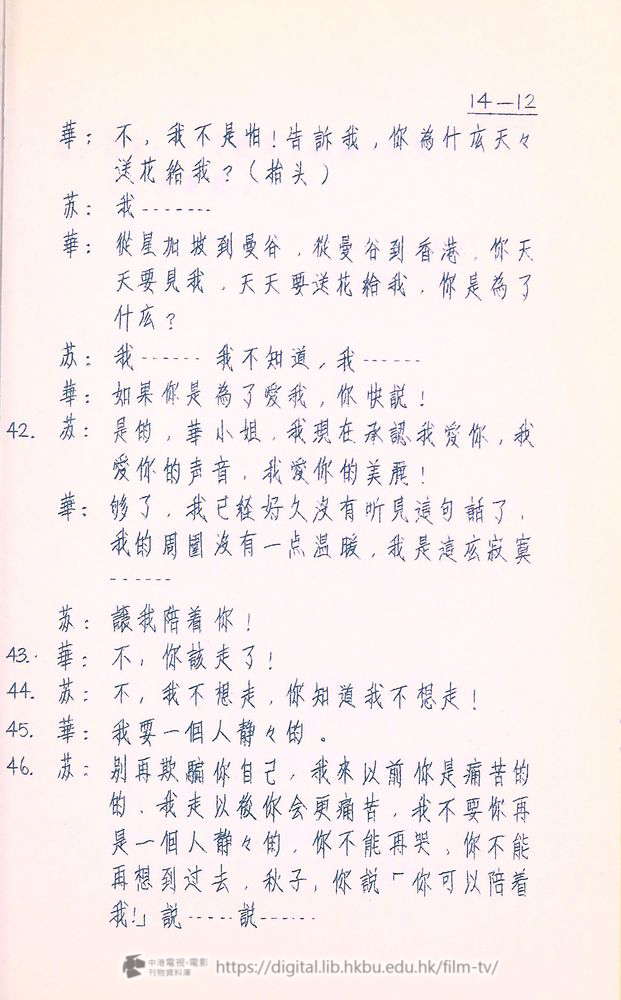 14-12
華：不，我不是怕！告訴我，你為什庅天々
送花給我？（抬头）
苏：我-------
華：從星加坡到曼谷，從曼谷到香港，你天
天要見我，天天要送花給我，你是為了
什庅？
苏：我------ 我不知道，我------
華：如果你是為了愛我，你快説！
42. 苏：是的，華小姐，我現在承認我愛你，我
愛你的声音，我愛你的美麗！
華：够了，我已経好久没有听見這句話了，
我的周圍没有一点温暖，我是這庅寂寞
------
苏：讓我陪着你！
43. 華：不，你該走了！
44. 苏：不，我不想走，你知道我不想走！
45. 華：我要一個人静々的。
46. 苏：别再欺騙你自己，我來以前你是痛苦的
的、我走以後你会更痛苦，我不要你再
是一個人静々的，你不能再哭，你不能
再想到过去，秋子，你說「你可以陪着
我！」説-----説------
中港電視·電影
刊物資料庫 https://digital.lib.hkbu.edu.hk/film-tv/